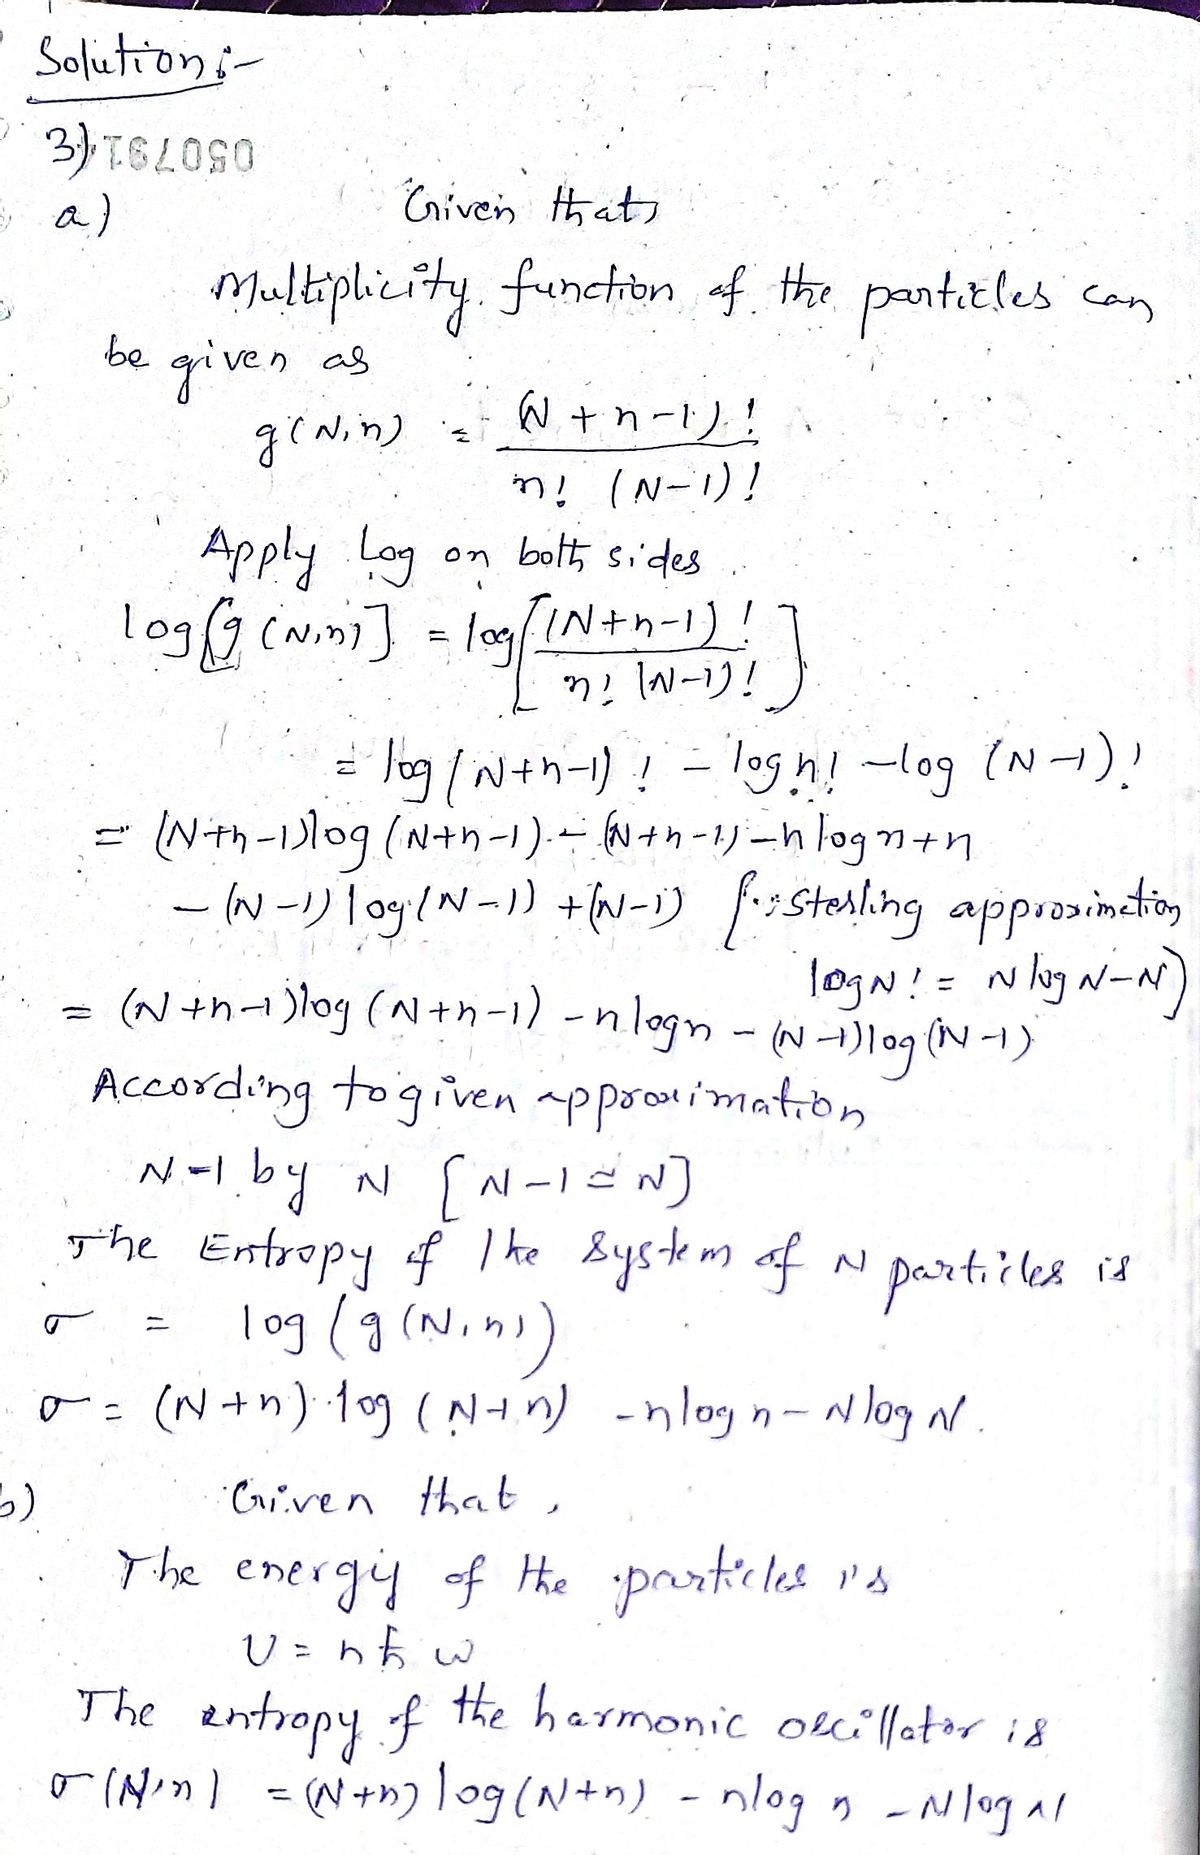 Solution :-
3)
050791
a) Given that,
Multiplicity function of the particles can
be given as
g(N,n) = (N+n-1)! / n! (N-1)!
Apply Log on both sides
log[g(N,n)] = log[(N+n-1)! / n! (N-1)!]
= log(N+n-1)! - log n! - log (N-1)!
= (N+n-1)log(N+n-1) - (N+n-1) - n log n + n
- (N-1) log(N-1) + (N-1) [∵ Sterling approximation
log N! = N log N - N]
= (N+n-1)log(N+n-1) - n log n - (N-1)log(N-1)
According to given approximation
N-1 by N [N-1 ≃ N]
The Entropy of the system of N particles is
σ = log(g(N,n))
σ = (N+n) log (N+n) - n log n - N log N.
b) Given that,
The energy of the particles is
U = nħω
The entropy of the harmonic oscillator is
σ(N,n) = (N+n) log(N+n) - n log n - N log N